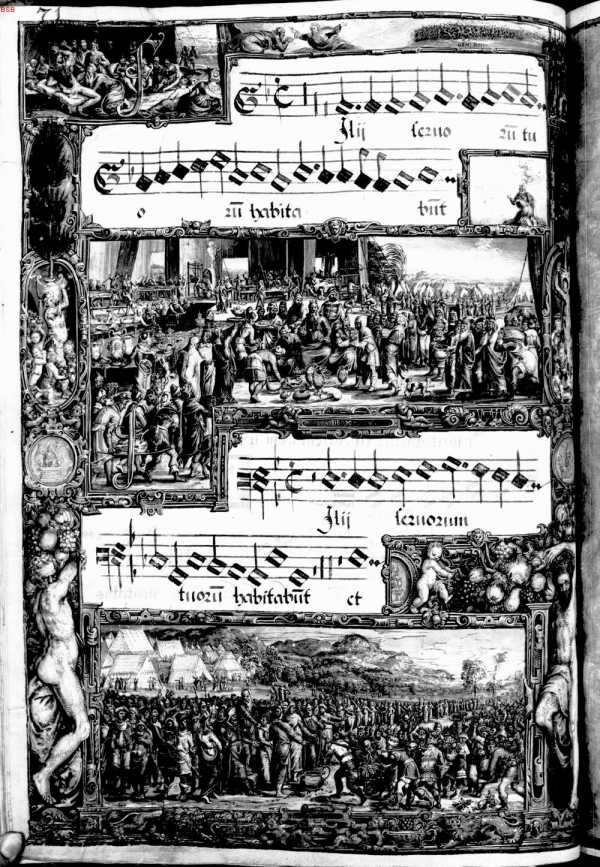 BSB
71
Filij seruo rū tu
o rū habita būt
Filij seruorum
tuorū habitabūt et